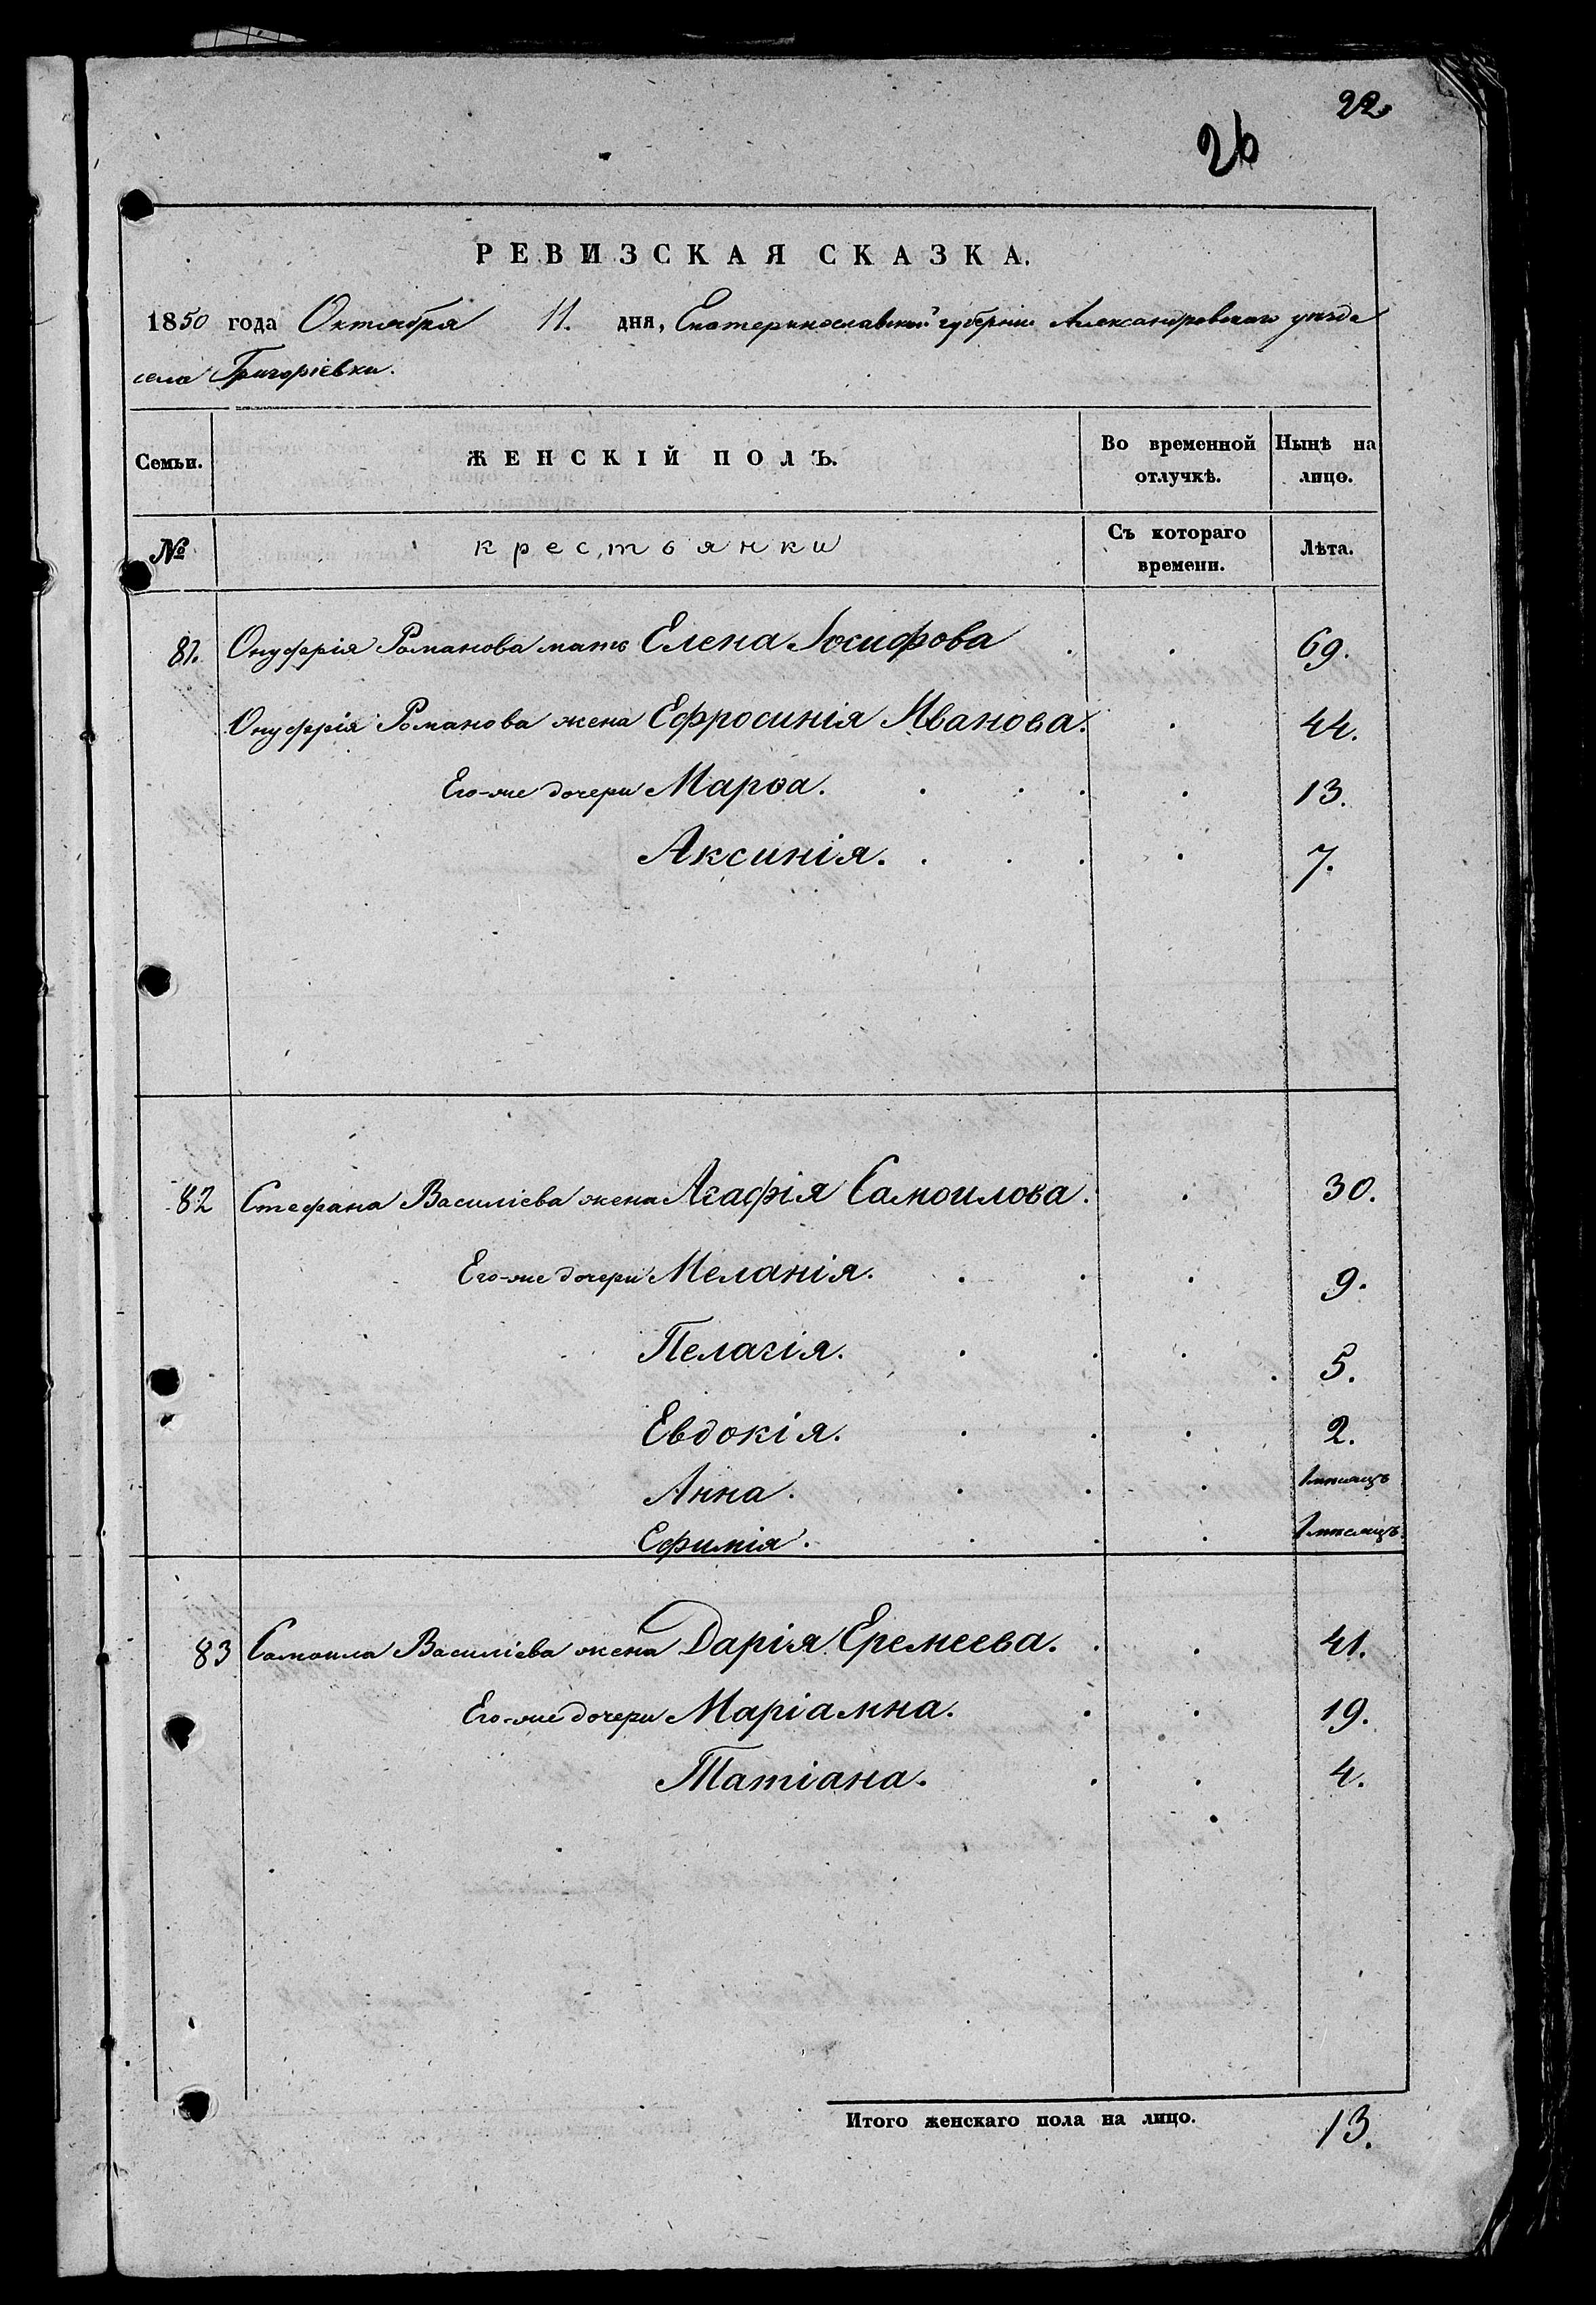 22
26
РЕВИЗСКАЯ СКАЗКА.
1850 года Октября 11. дня, Екатеринославской губерніи Александровскаго уѣзда
села Григоріевки.
Семьи.
ЖЕНСКІЙ ПОЛЪ.
Во временной отлучкѣ.
Нынѣ на лицо.
№
крестьянки
Съ котораго времени.
Лѣта.
81. Онуфрія Романова мать Елена Іосифова . . 69.
Онуфрія Романова жена Ефросинія Иванова. . 44.
Его-же дочери Марѳа. . . . . 13.
Аксинія. . . . . 7.
82 Стефана Василіева жена Агафія Самоилова. . 30.
Его-же дочери Меланія. . . . 9.
Пелагія. . . . 5.
Евдокія. . . . 2.
Анна. . . . 1 мѣсяцъ
Ефимія. . . . 1 мѣсяцъ.
83 Самоила Василіева жена Дарія Еремеева. . . 41.
Его-же дочери Маріамна. . . 19.
Татіана. . . 4.
Итого женскаго пола на лицо. 13.